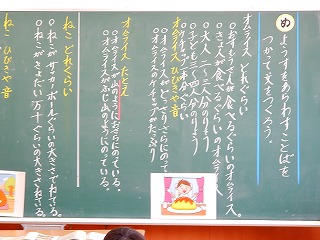 め
ようすをあらわすことばを
つかって文をつくろう。
オムライス どれぐらい
○おすもうさんが食べるぐらいのオムライス。
○きょ人が食べるぐらいのオムライス。
○大人二〜三人分のりょう
○子ども三〜四人分のりょう
オムライス ひびきや音
○オムライスがどっさりさらにのっている。
○オムライスのケチャップがたっぷり
オムライス たとえ
○オムライスが山のようにおさらにのっている。
○オムライスがふじ山のようにのっている。
ねこ どれぐらい
○ねこがサッカーボールぐらいの大きさでねている。
○ねこがきょだい万十ぐらいの大きさでねている。
ねこ ひびきや音